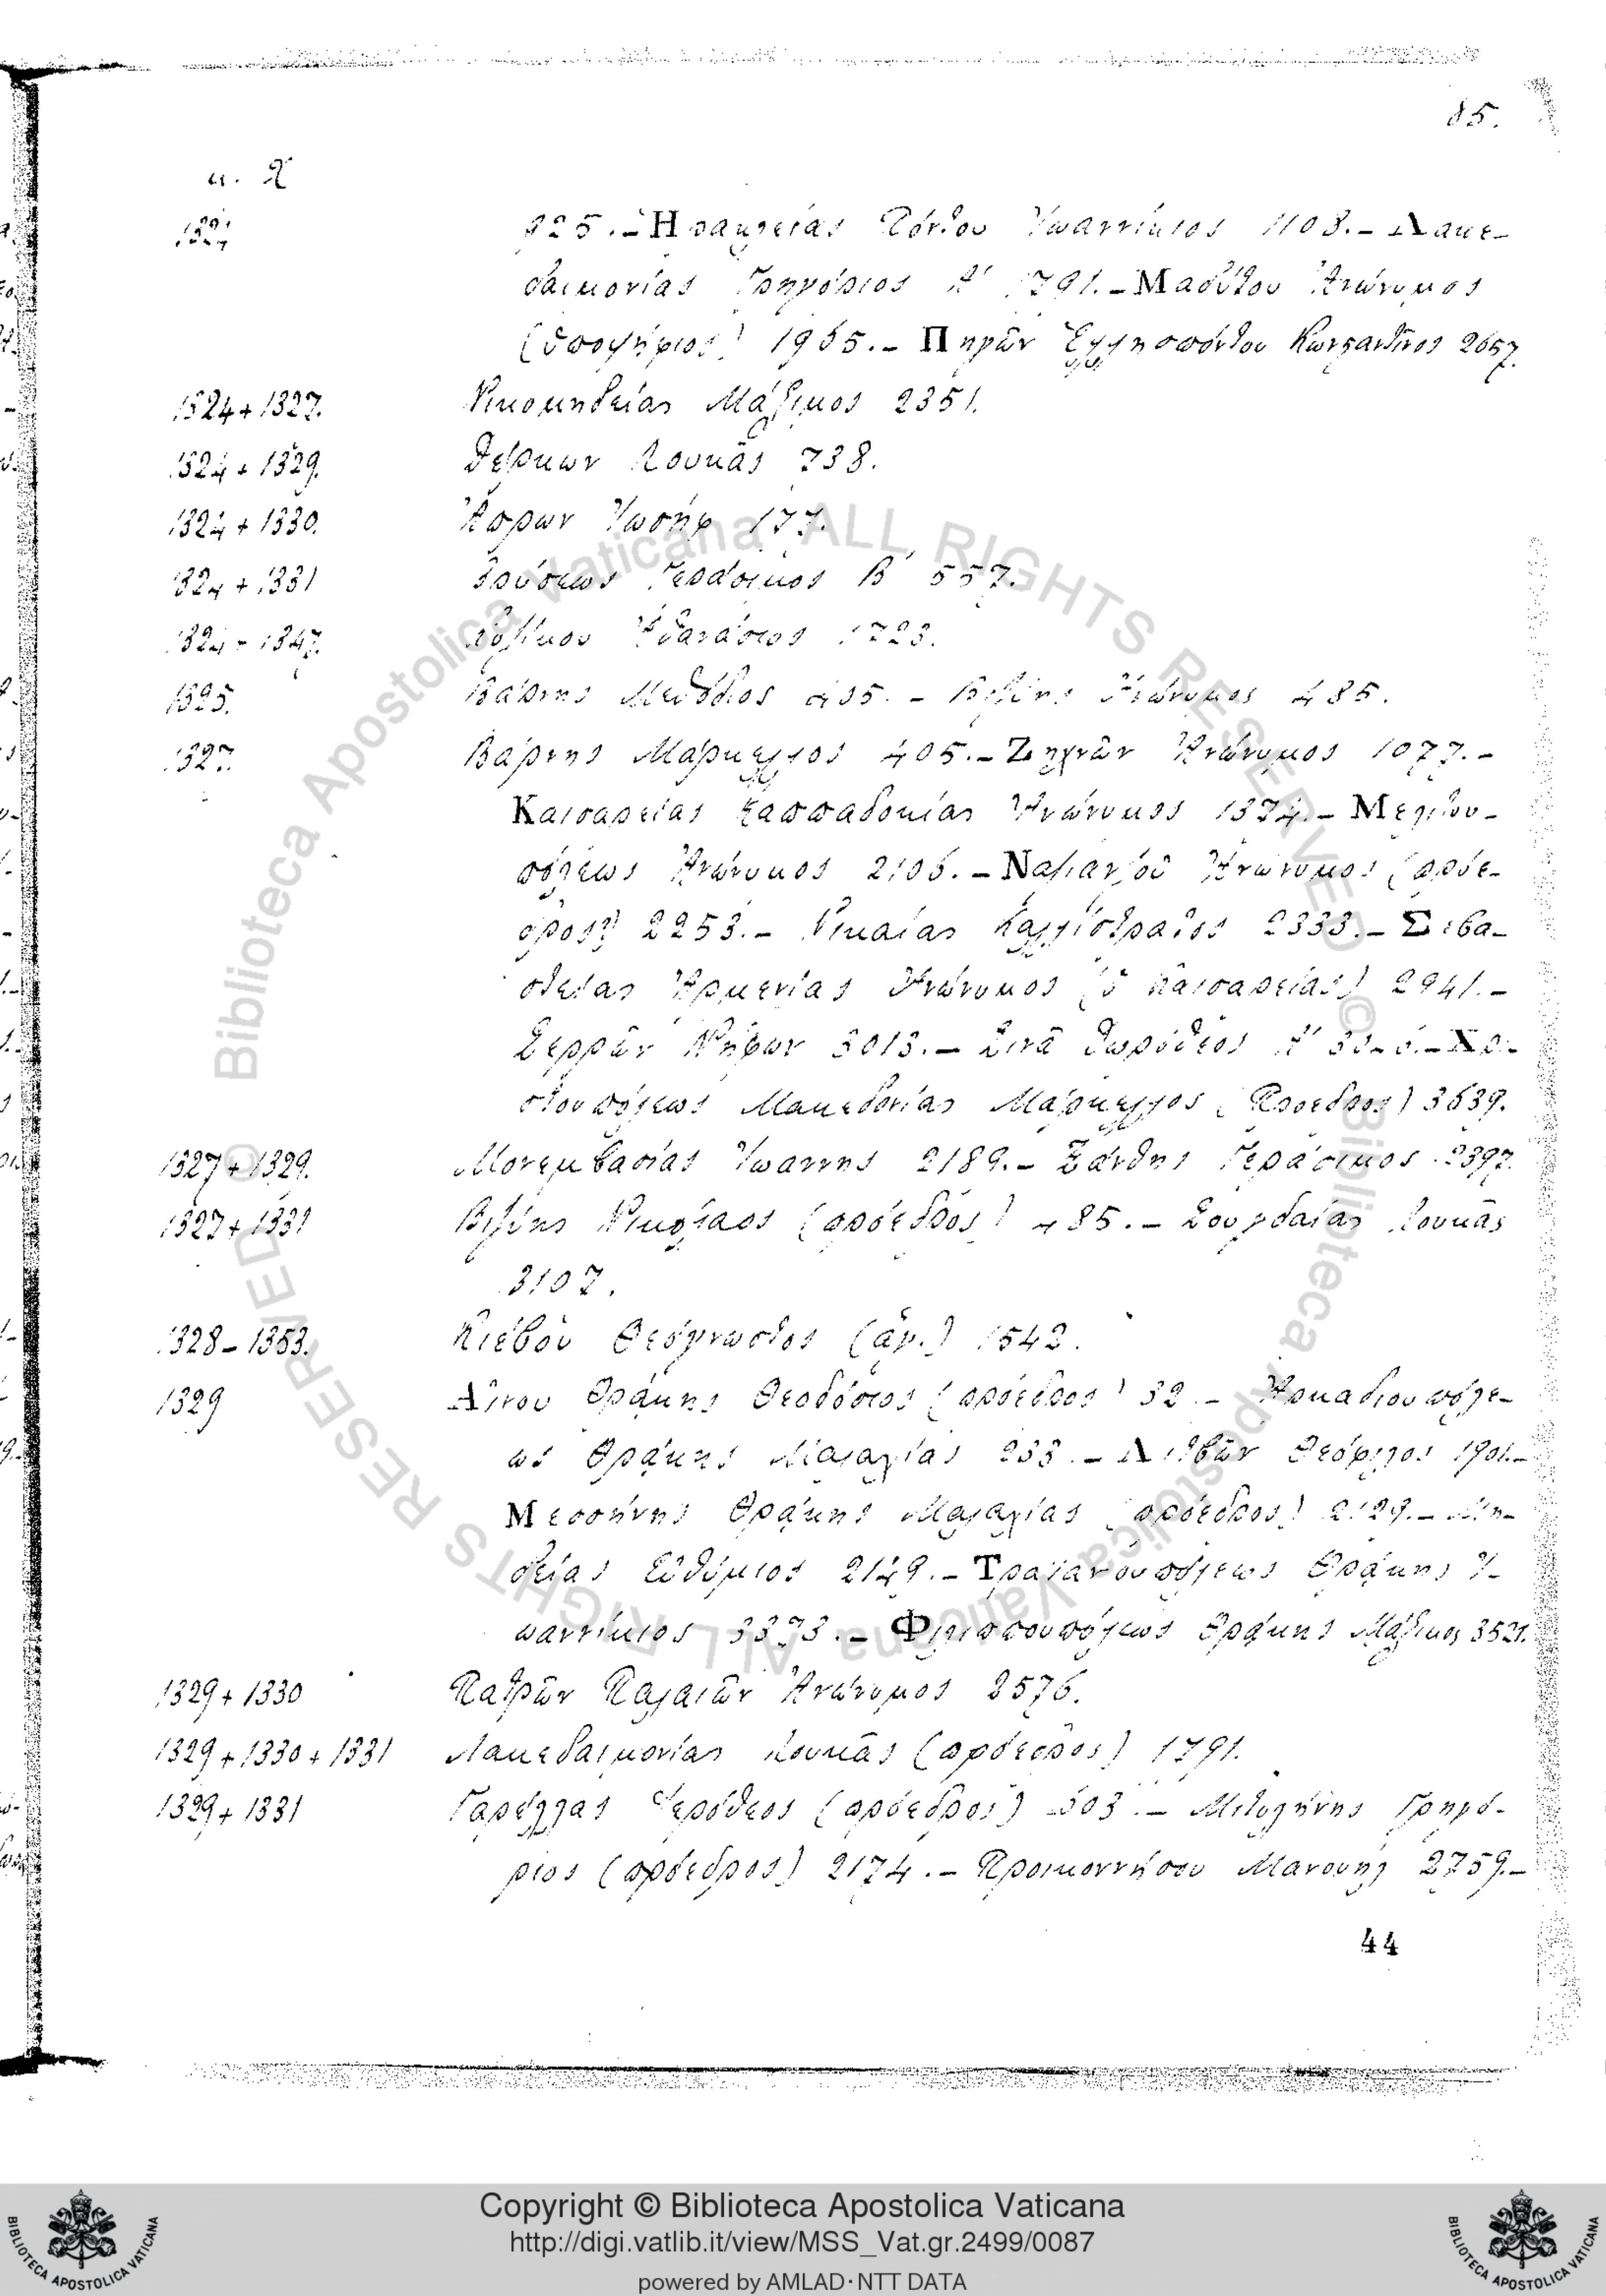 85.
μ. Χ
1324
925.- Ηρακλείας Πόντου Ἰωαννίκιος 1108.- Λακε-
δαιμονίας Γρηγόριος Α΄ 1791.- Μαδύτου Ἀνώνυμος
(ὑποψήφιος) 1965.- Πηγῶν Ἑλλησπόντου Κωνσταντῖνος 2657.
1324+1327. Νικομηδείας Μάξιμος 2351.
1324+1329. Δέρκων Λουκᾶς 738.
1324+1330. Ἄπρων Ἰωσήφ 177.
1324+1331 Βρύσεως Γεράσιμος Β΄ 557.
1324-1347. Κυζίκου Ἀθανάσιος 1723.
1325. Βάρνης Μεθόδιος 405.- Βιζύης Ἀνώνυμος 485.
1327. Βάρνης Μάρκελλος 405.- Ζηχνῶν Ἀνώνυμος 1077.-
Καισαρείας Καππαδοκίας Ἀνώνυμος 1374.- Μελιτου-
πόλεως Ἀνώνυμος 2106.- Ναζιανζοῦ Ἀνώνυμος (πρόε-
δρος) 2253.- Νικαίας Καλλίστρατος 2333.- Σεβα-
στείας Ἀρμενίας Ἀνώνυμος (ὁ Καισαρείας) 2941.-
Σερρῶν Νήφων 3013.- Σινᾶ Δωρόθεος Α΄ - Χρι-
στουπόλεως Μακεδονίας Μάρκελλος (Πρόεδρος) 3639.
1327+1329. Μονεμβασίας Ἰωάννης 2189.- Ξάνθης Γεράσιμος 2397.
1327+1331 Βιζύης Νικόλαος (πρόεδρος) 485.- Σουγδαίας Λουκᾶς
3107.
1328-1353. Κιέβου Θεόγνωστος (ἅγ.) 1542.
1329 Αἴνου Θράκης Θεοδόσιος (πρόεδρος) 32.- Ἀρκαδιουπόλε-
ως Θράκης Μαλαχίας 233.- Λιτβῶν Θεόφιλος 1901.-
Μεσσήνης Θράκης Μαλαχίας (πρόεδρος) 2129.- Μη-
δείας Εὐθύμιος 2149.- Τραϊανουπόλεως Θράκης Ἰ-
ωαννίκιος 3373.- Φιλιππουπόλεως Θράκης Μάξιμος 3521.
1329+1330 Πατρῶν Παλαιῶν Ἀνώνυμος 2576.
1329+1330+1331 Λακεδαιμονίας Λουκᾶς (πρόεδρος) 1791.
1329+1331 Γαρέλλας Ἱερόθεος (πρόεδρος) 603.- Μιτυλήνης Γρηγό-
ριος (πρόεδρος) 2174.- Προικοννήσου Μανουήλ 2759.-
44
© Biblioteca Apostolica Vaticana ALL RIGHTS RESERVED © Biblioteca Apostolica Vaticana ALL RIGHTS RESERVED
Copyright © Biblioteca Apostolica Vaticana
http://digi.vatlib.it/view/MSS_Vat.gr.2499/0087
powered by AMLAD·NTT DATA
BIBLIOTECA APOSTOLICA VATICANA
BIBLIOTECA APOSTOLICA VATICANA